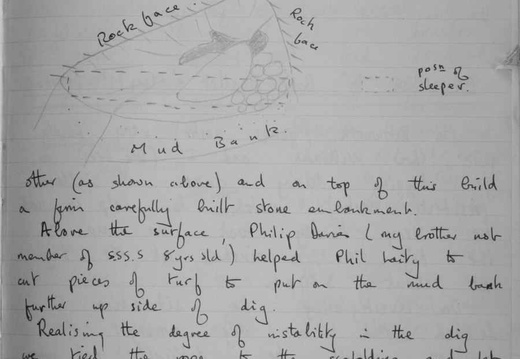 Rock face
Rock
face
posn of
sleeper.
Mud Bank.
other (as shown above) and on top of this build
a firm carefully built stone embankment.
Above the surface, Philip Davies (my brother not
member of S.S.S 8 yrs old) helped Phil Haity to
cut pieces of turf to put on the mud bank
further up side of dig.
Realising the degree of instability in the dig
we tied the rope to the scaffolding and let